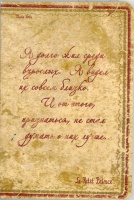 Я долго жил среди
взрослых. Я видел
их совсем близко.
И от этого,
признаться, не стал
думать о них лучше.
Le Petit Prince